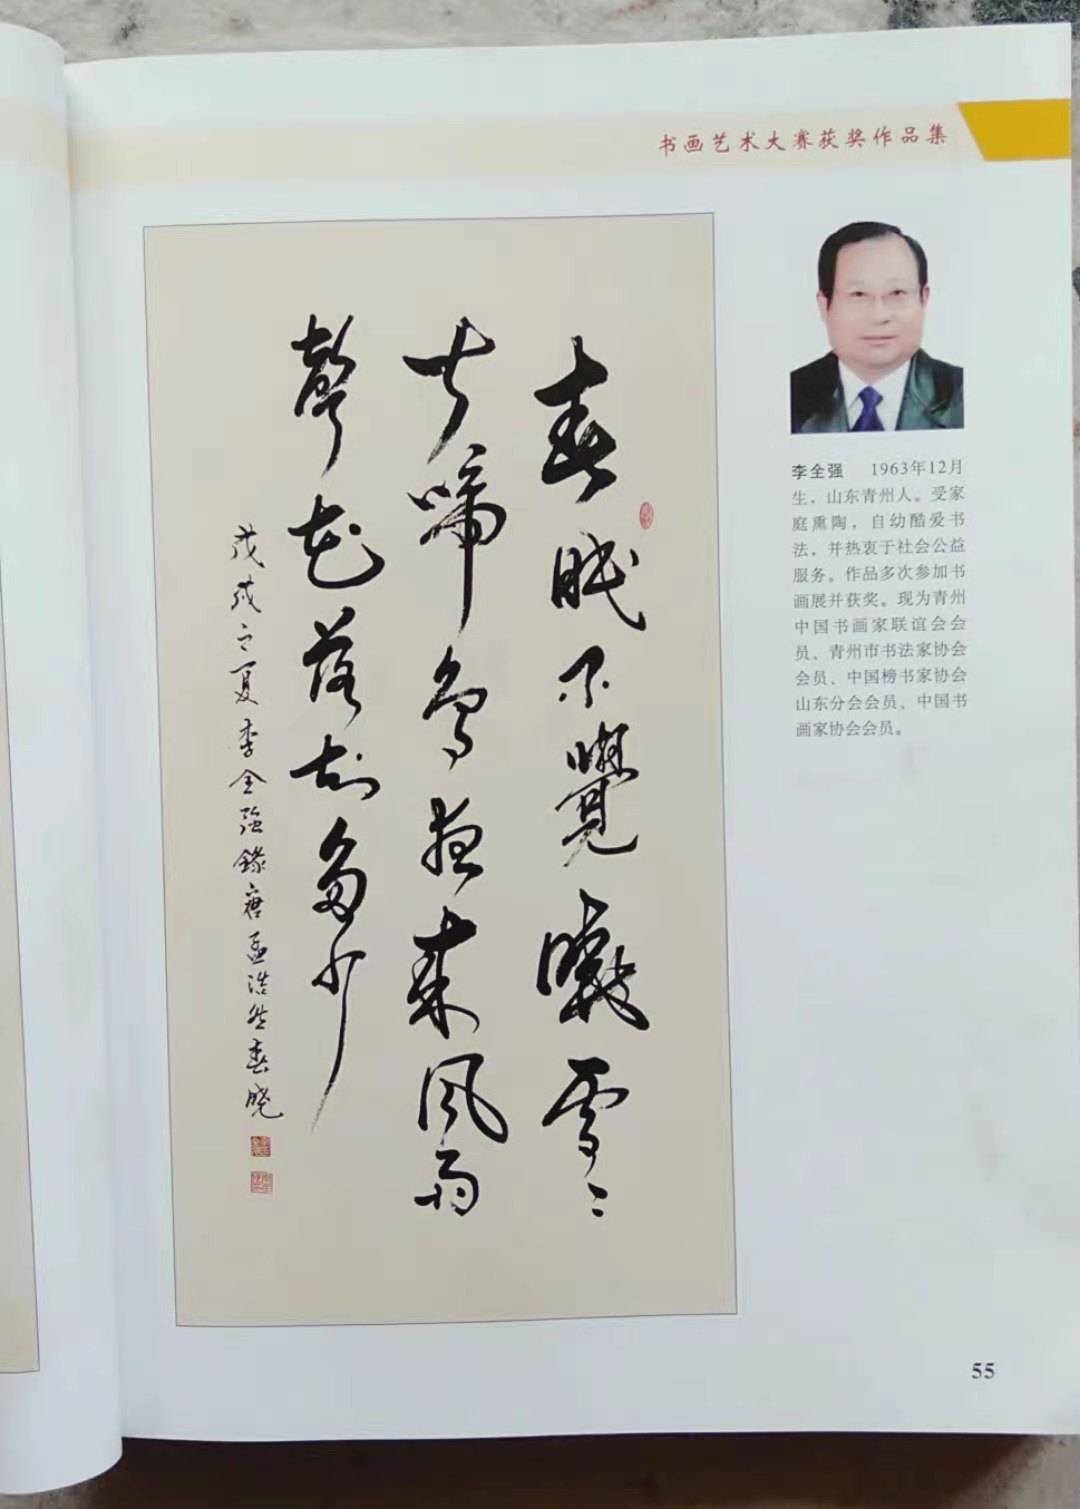 书画艺术大赛获奖作品集
春眠不覺曉處〻
聞啼鳥夜来風雨
聲花落知多少
戊戌之夏李全强錄唐孟浩然春曉
李全强 1963年12月
生，山东青州人。受家
庭熏陶，自幼酷爱书
法，并热衷于社会公益
服务。作品多次参加书
画展并获奖。现为青州
中国书画家联谊会会
员、青州市书法家协会
会员、中国榜书家协会
山东分会会员、中国书
画家协会会员。
55